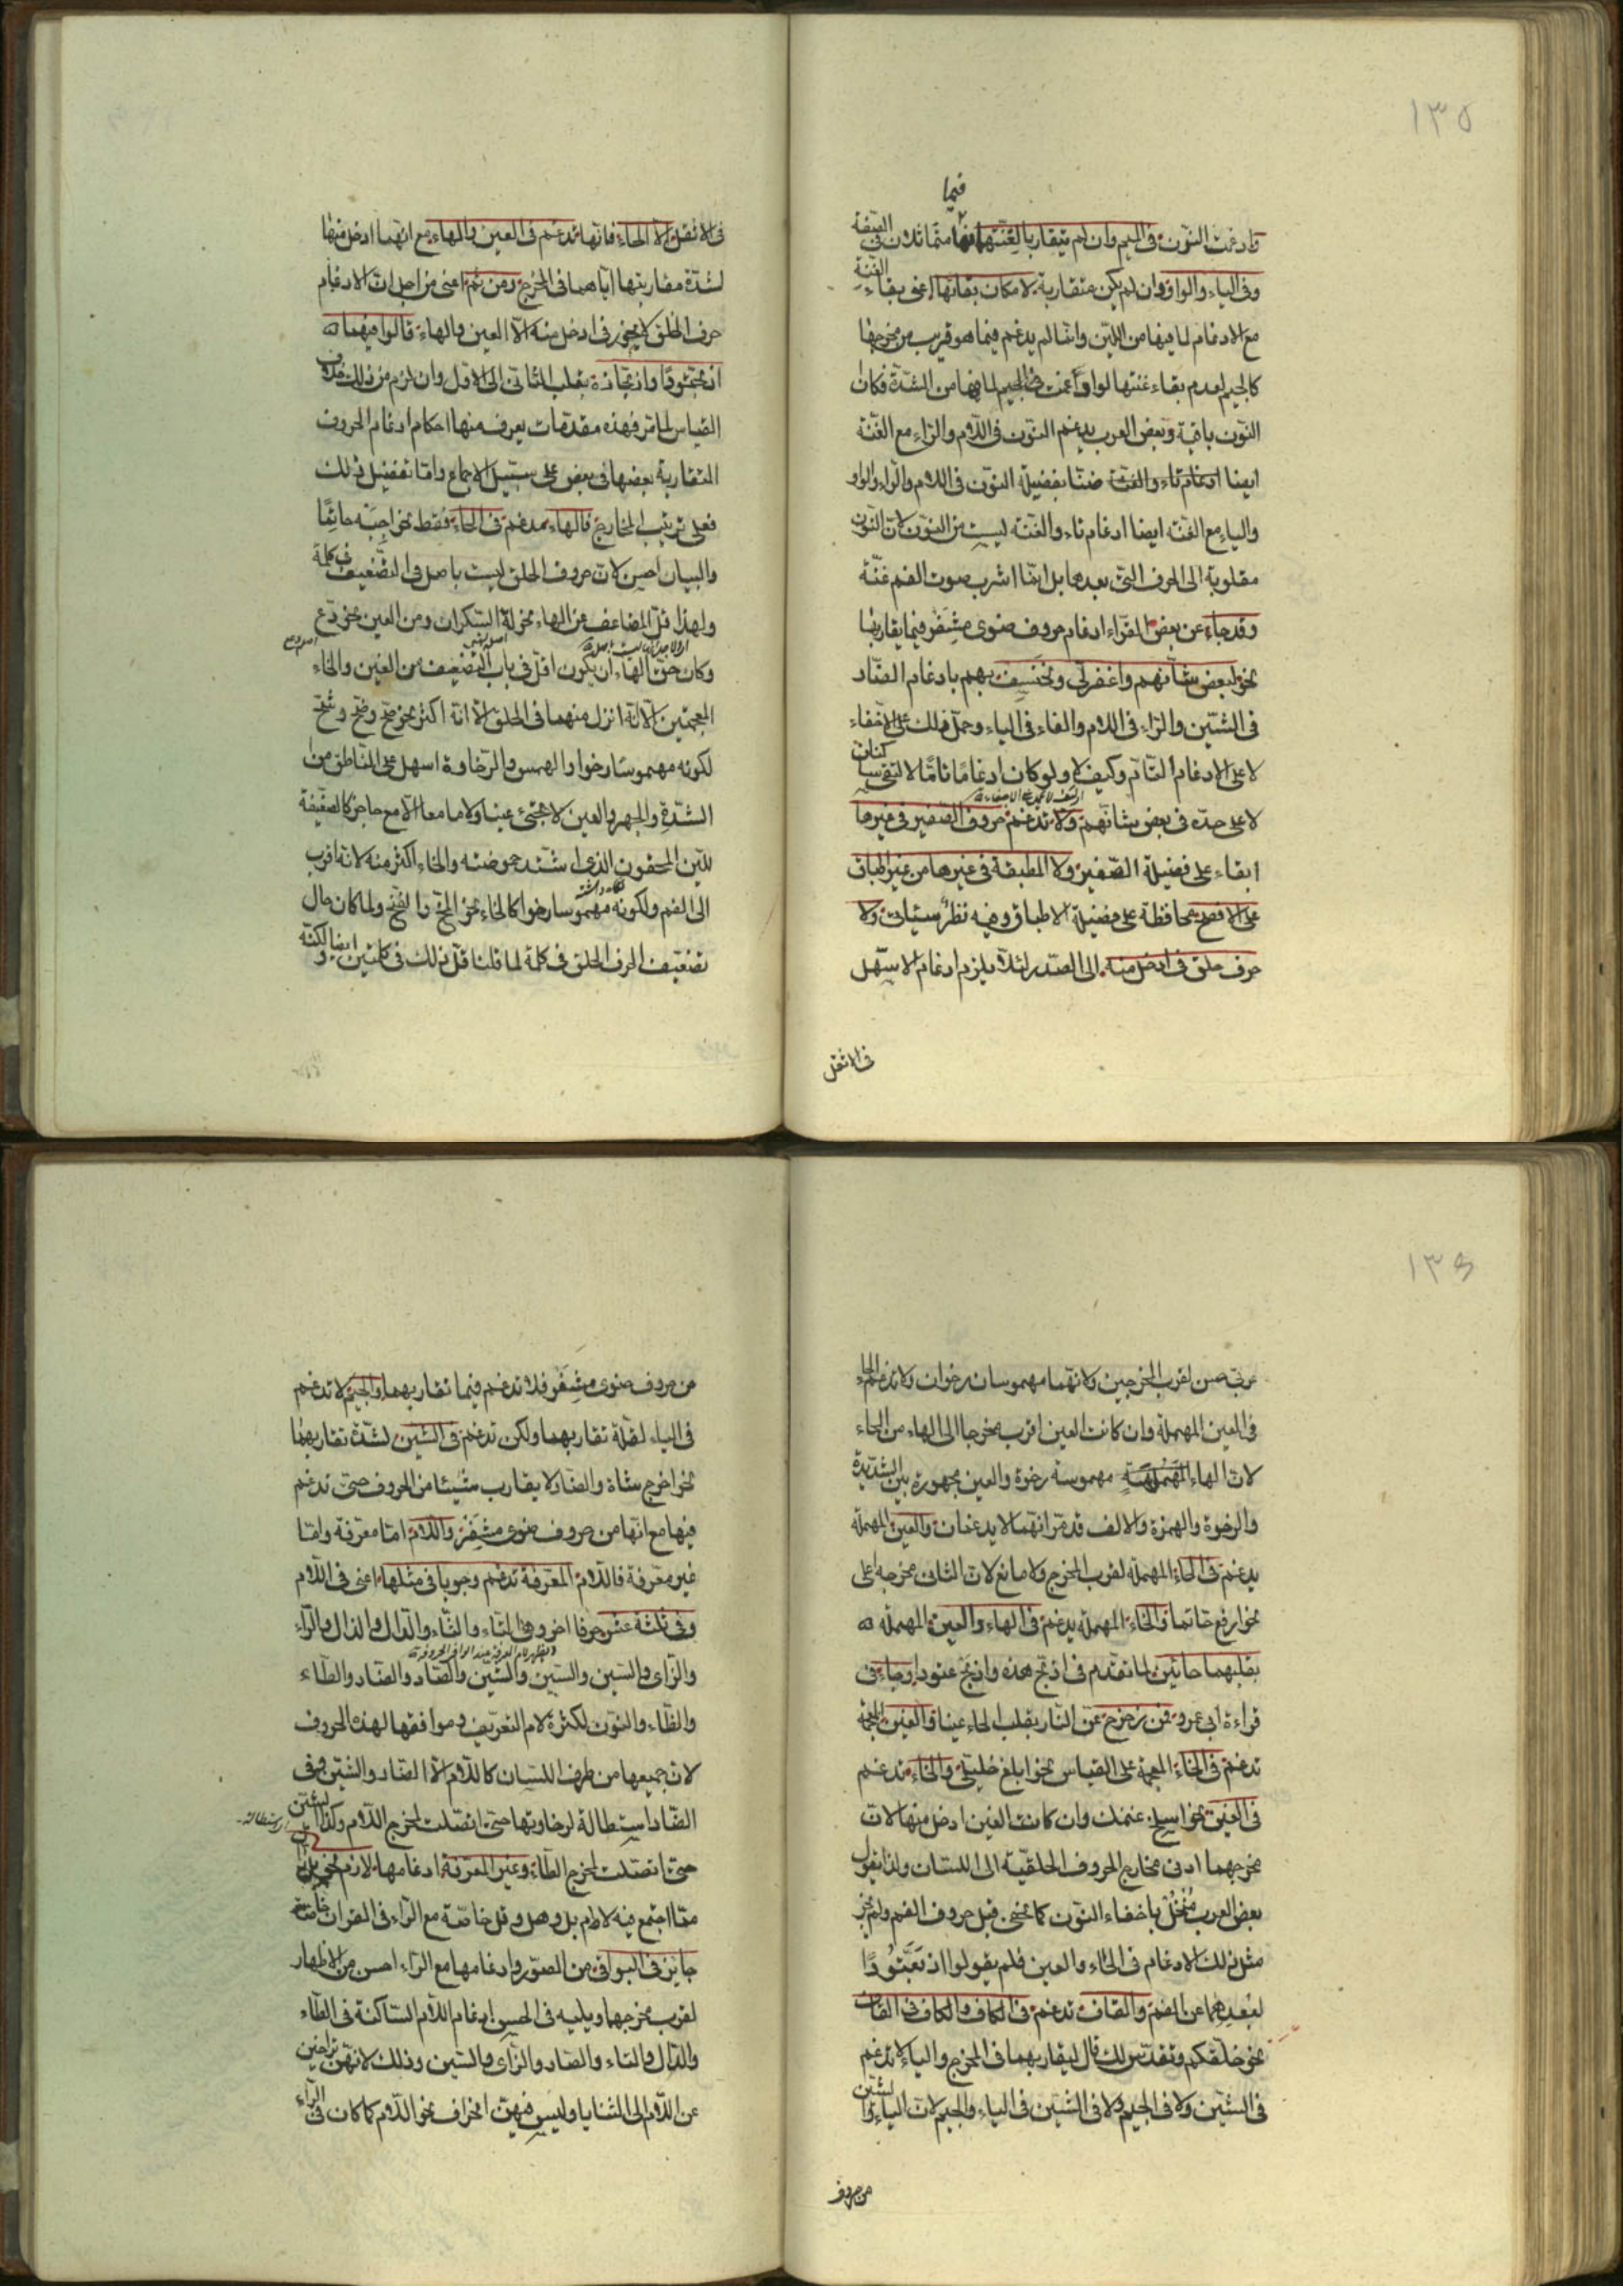 ١٣٥
فيما
وادغمت النون فى الميم وان لم يتقاربا لغنتها فيما متماثلان فى الصفة
وفى الياء والواو وان لم يكن متقاربة لامكان بقائها اعنى بقاء الغنة
مع الادغام لما فيها من اللين وانما لم يدغم فيما هو قريب من مخرجها
كالجيم لعدم بقاء غنتها لو ادغمت فى الجيم لما فيها من الشدة فكان
النون باقية وبعض العرب يدغم النون فى اللام والراء مع الغنة
ايضا ادغام تاء والغنة ضنا بفضيلة النون فى اللام والراء والواو
والياء مع الغنة ايضا ادغام تاء والغنة ليست من النون لان النون
مقلوبة الى الحرف التى بعدها بل انما اشرب صوت الفم غنة
وقد جاء عن بعض القراء ادغام حروف ضوى مشفر فيما يقاربها
نحو لبعض شأنهم واغفر لى ونخسف بهم بادغام الضاد
فى الشين والراء فى اللام والفاء فى الباء وحمل ذلك على الاخفاء
لا على الادغام التام وكيف لا ولو كان ادغاما تاما لالتقى ساكنان
لا على حدة فى بعض شانهم ولا تدغم حروف الصفير فى غيرها
ابقاء على فضيلة الصفير ولا المطبقة فى غيرها من غير اطباق
على الافصح محافظة على فضيلة الاطباق وفيه نظر سيأتى ولا
حرف حلق فى ادخل منه الى الصدر لئلا يلزم ادغام الاسهل
فى الاثقل
فى الاثقل الا الحاء فانها تدغم فى العين والهاء مع انهما ادخل منها
لشدة مقاربتها اياهما فى المخرج ومن ثم اعنى من اجل ان الادغام
حرف الحلق لا يجوز فى ادخل منه الا العين والهاء قالوا فيهما
اذبحتودا واذبحاذه بقلب الثانى الى الاول وان لزم من ذلك خلاف
القياس لما مر فهذه مقدمات يعرف منها احكام ادغام الحروف
المتقاربة بعضها فى بعض على سبيل الاجماع واما تفصيل ذلك
فعلى ترتيب المخارج فالهاء تدغم فى الحاء فقط نحو اجبه حاتما
والبيان احسن لان حروف الحلق ليست باصل فى التضعيف فى كلمة
ولهذا قل المضاعف من الهاء نحو لة السكران ومن العين نحو دع
وكان حق الهاء ان يكون اقل فى باب التضعيف من الغين والخاء
المعجمتين لانه انزل منهما فى الحلق الا انه اكثر نحو صح وضح وشح
لكونه مهموسا رخوا والهمس والرخاوة اسهل على الناطق من
الشدة والجهر والعين لا تجئ عينا ولاما معا الا مع حاجز كالضعيفة
للين المحقون الذى اشتد حموضته والخاء اكثر منه لانه اقرب
الى الفم ولكونه مهموسا رخوا كالحاء نحو المخ والفخ ولما كان حال
تضعيف الحرف الحلق فى كلمة لما قلنا قل ذلك فى كلمتين ايضا ولكنه
١٣٦
عربى حسن لقرب المخرجين ولانهما مهموسان رخوان ولا تدغم الهاء
فى العين المهملة وان كانت العين اقرب مخرجا الى الهاء من الحاء
لان الهاء المهملة مهموسة رخوة والعين مجهورة بين الشديدة
والرخوة والهمزة والالف قد مر انهما لا يدغمان والعين المهملة
يدغم فى الحاء المهملة لقرب المخرج ولا مانع لان الثانى مخرجه اعلى
نحو ارفع حاتما والحاء المهملة يدغم فى الهاء والعين المهملة
بقلبهما حائين لما تقدم فى اذبح هذه واذبح عتودا وجاء فى
قراءة ابى عمرو فمن زحزح عن النار بقلب الحاء عينا والغين المعجمة
تدغم فى الخاء المعجمة على القياس نحو ابلغ خليلى والخاء تدغم
فى الغين نحو اسلخ غنمك وان كانت الغين ادخل منها لان
مخرجهما ادنى مخارج الحروف الحلقية الى اللسان ولذا يقول
بعض العرب منخل باخفاء النون كما تخفى قبل حروف الفم ولم يجز
مثل ذلك الادغام فى الحاء والعين فلم يقولوا اذبعتودا
لبعدهما عن الفم والقاف تدغم فى الكاف والكاف فى القاف
نحو خلقكم ونقدس لك قال ليقاربهما فى المخرج والياء لا تدغم
فى الشين ولا فى الجيم ولا فى الشين فى الياء والجيم لان الياء والشين
من حروف
من حروف ضوى مشفر فلا تدغم فيما تقاربهما والجيم لا تدغم
فى الياء لقلة تقاربهما ولكن تدغم فى الشين لشدة تقاربهما
نحو اخرج شاة والضاد لا يقارب شيئا من الحروف حتى تدغم
فيها مع انها من حروف ضوى مشفر واللام اما معرفة واما
غير معرفة فاللام المعرفة تدغم وجوبا فى مثلها اعنى فى اللام
وفى ثلثة عشر حرفا اخر وهى التاء والثاء والدال والذال والراء
والزاى والسين والشين والصاد والضاد والطاء
والظاء والنون لكثرة لام التعريف وموافقها لهذه الحروف
لان جميعها من طرف اللسان كاللام الا الضاد والشين وفى
الضاد استطالة لرخاوتها حتى اتصلت لمخرج اللام وكذا الشين
حتى اتصلت لمخرج الطاء وغير المعرفة ادغامها لازم نحو بل ران
مما اجتمع فيه لام بل وهل وقل خاصة مع الراء فى القران خاصة
جايز فى البواقى من الصور وادغامها مع الراء احسن من الاظهار
لقرب مخرجهما ويليه فى الحسن ادغام اللام الساكنة فى الطاء
والدال والتاء والصاد والزاى والسين وذلك لانهن تراخين
عن اللام الى الثنايا وليس فيهن انحراف نحو اللام كما كان فى الراء